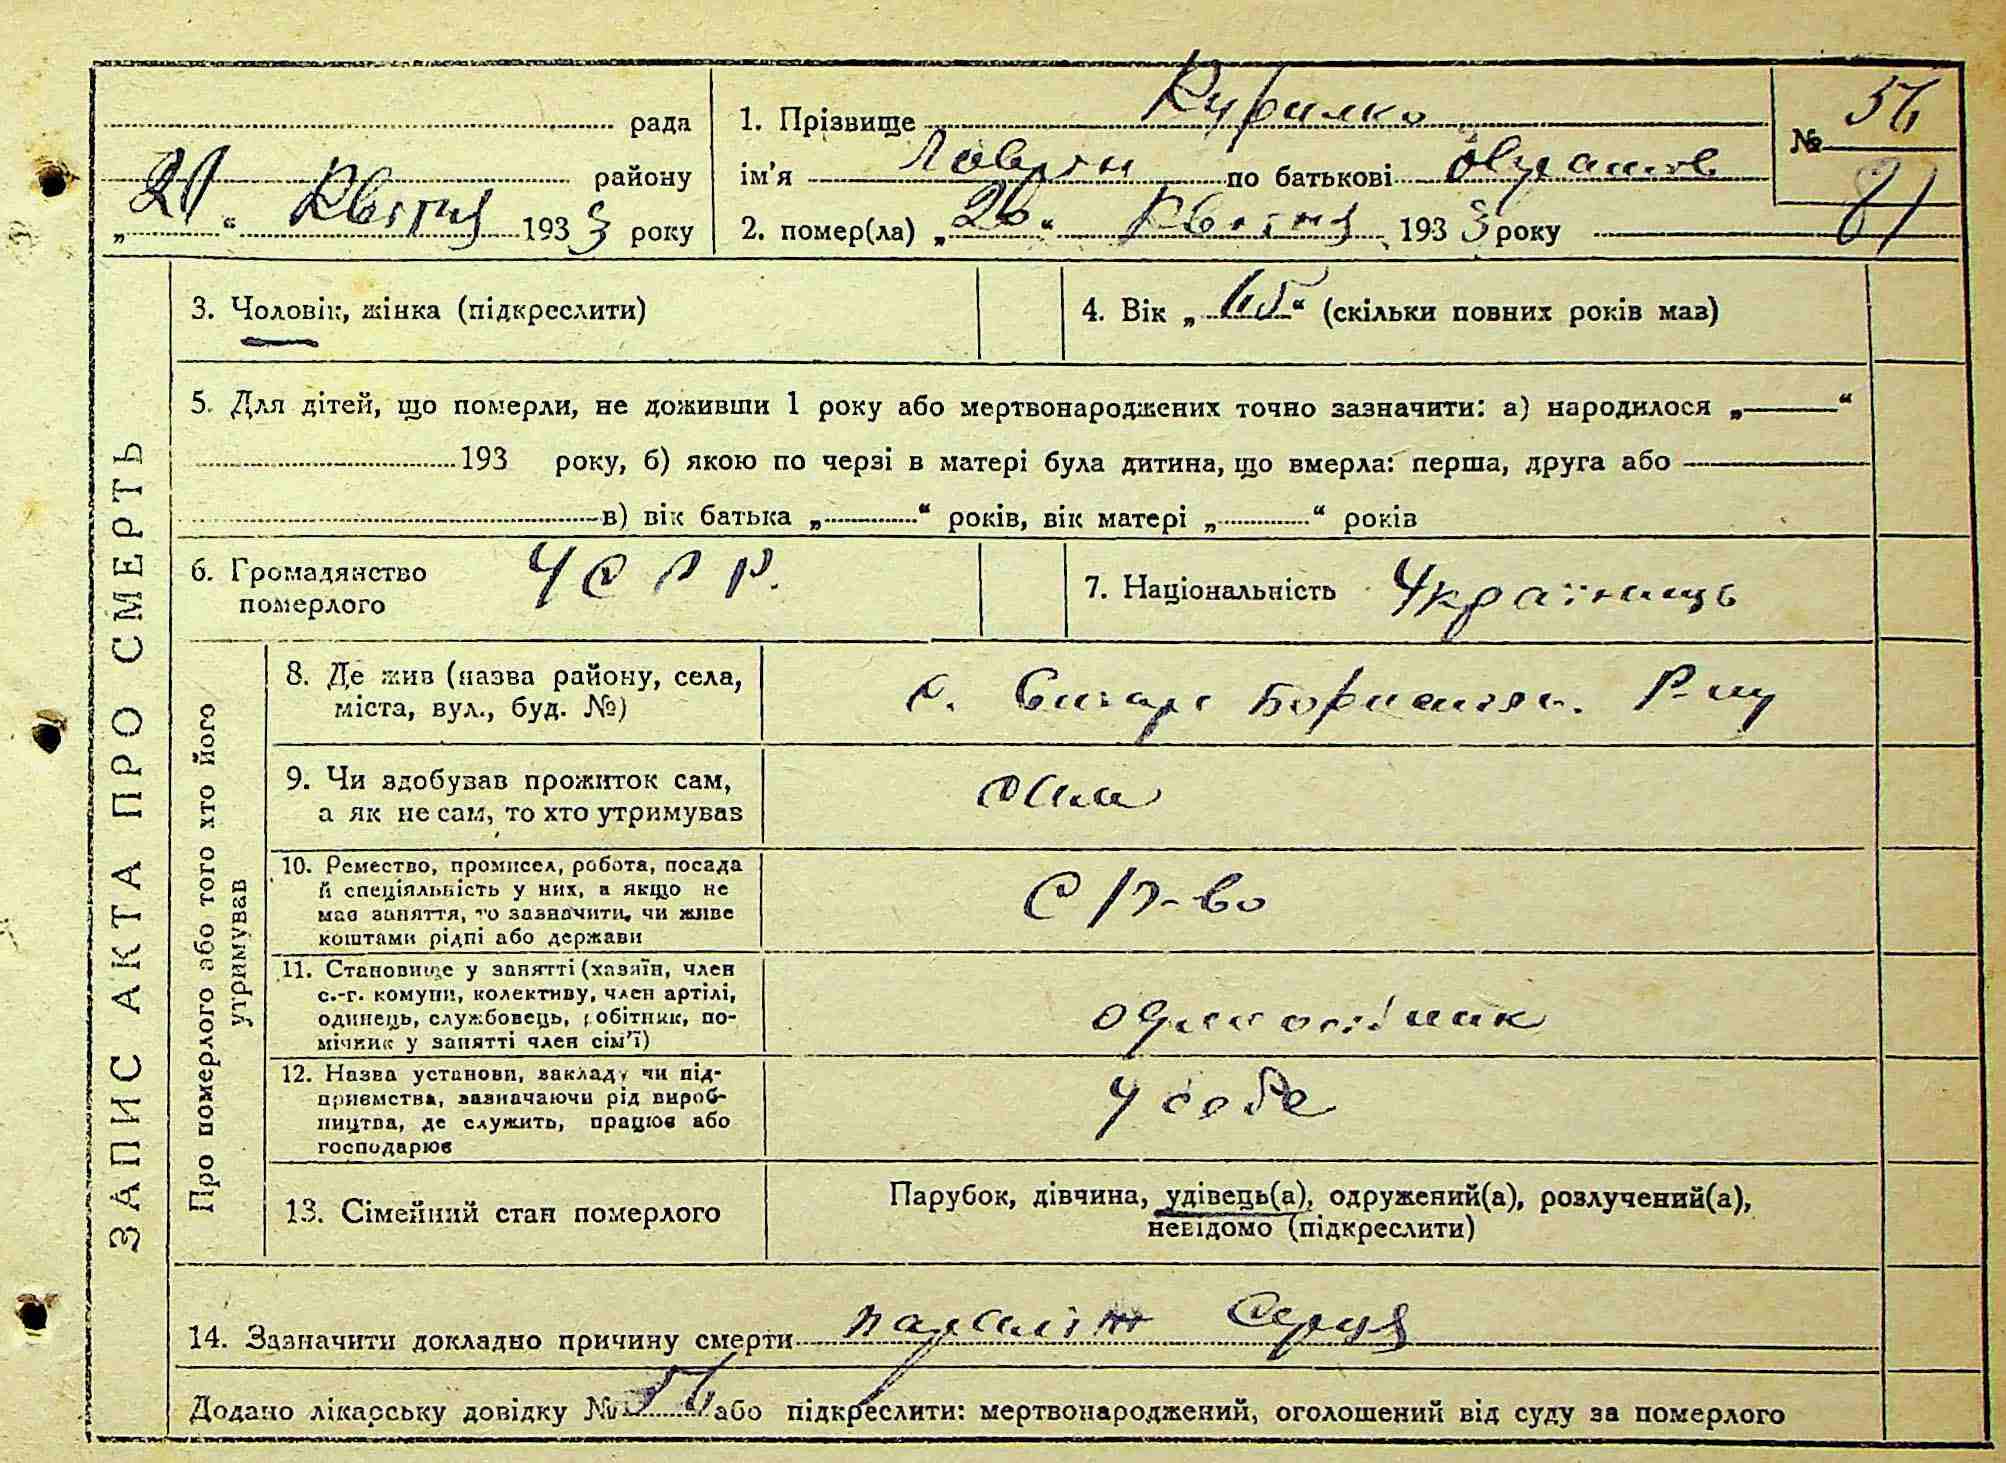 ЗАПИС АКТА ПРО СМЕРТЬ
рада
району
"28" Квітня 1933 року
1. Прізвище Курилко
ім'я Лаврін по батькові
2. помер(ла) "26" Квітня 1933 року
№ 56
81
3. Чоловік, жінка (підкреслити)
4. Вік "65" (скільки повних років має)
5. Для дітей, що померли, не доживши 1 року або мертвонароджених точно зазначити: а) народилося "——"
193 року, б) якою по черзі в матері була дитина, що вмерла: перша, друга або
в) вік батька "......" років, вік матері "......" років
6. Громадянство
померлого
УСРР.
7. Національність Українець
Про померлого або того хто його
утримував
8. Де жив (назва району, села,
міста, вул., буд. №)
с. Синарс Боришпол. Р-ну
9. Чи здобував прожиток сам,
а як не сам, то хто утримував
сам
10. Ремество, промисел, робота, посада
й спеціяльність у них, а якщо не
має заняття, то зазначити, чи живе
коштами рідні або держави
С Г-во
11. Становище у занятті (хазяїн, член
с.-г. комуни, колективу, член артілі,
одинець, службовець, робітник, по-
мічник у занятті член сім'ї)
одноосібник
12. Назва установи, закладу чи під-
приємства, зазначаючи рід вироб-
ництва, де служить, працює або
господарює
У себе
13. Сімейний стан померлого
Парубок, дівчина, удівець(а), одружений(а), розлучений(а),
невідомо (підкреслити)
14. Зазначити докладно причину смерти параліж Серця
Додано лікарську довідку № 56 або підкреслити: мертвонароджений, оголошений від суду за померлого